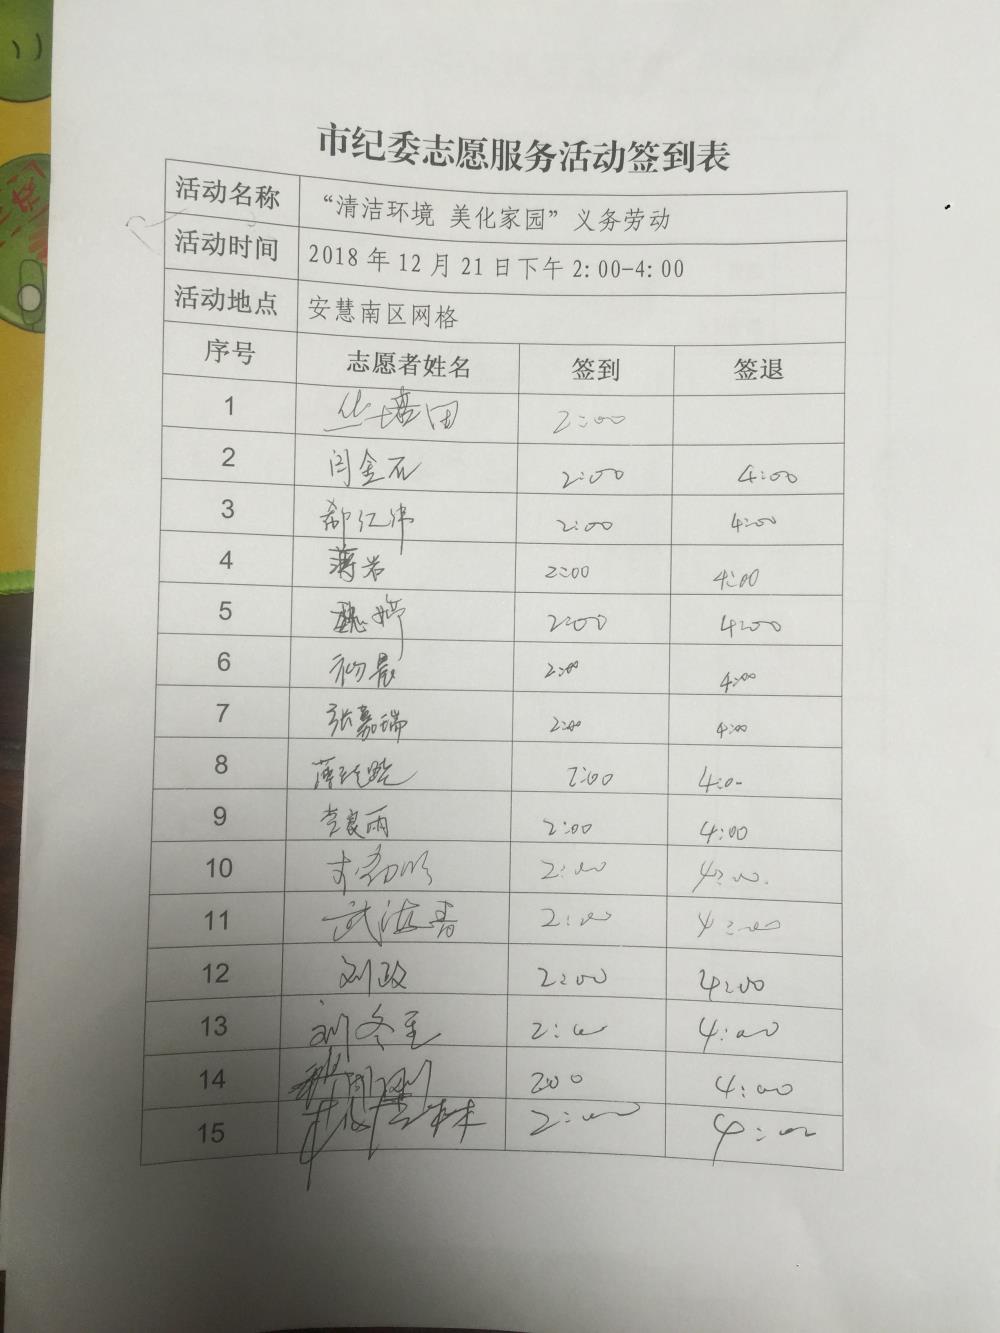 市纪委志愿服务活动签到表
活动名称 “清洁环境 美化家园”义务劳动
活动时间 2018年12月21日下午2:00-4:00
活动地点 安慧南区网格
序号 志愿者姓名 签到 签退
1 2:00
2 闫金石 2:00 4:00
3 郝红伟 2:00 4:00
4 薄岩 2:00 4:00
5 魏婷 2:00 4:00
6 杨晨 2:00 4:00
7 张嘉瑞 2:00 4:00
8 2:00 4:0-
9 2:00 4:00
10 2:00 4:00.
11 武海青 2:00 4:00
12 刘政 2:00 4:00
13 刘冬至 2:00 4:00
14 2:00 4:00
15 2:00 4:00